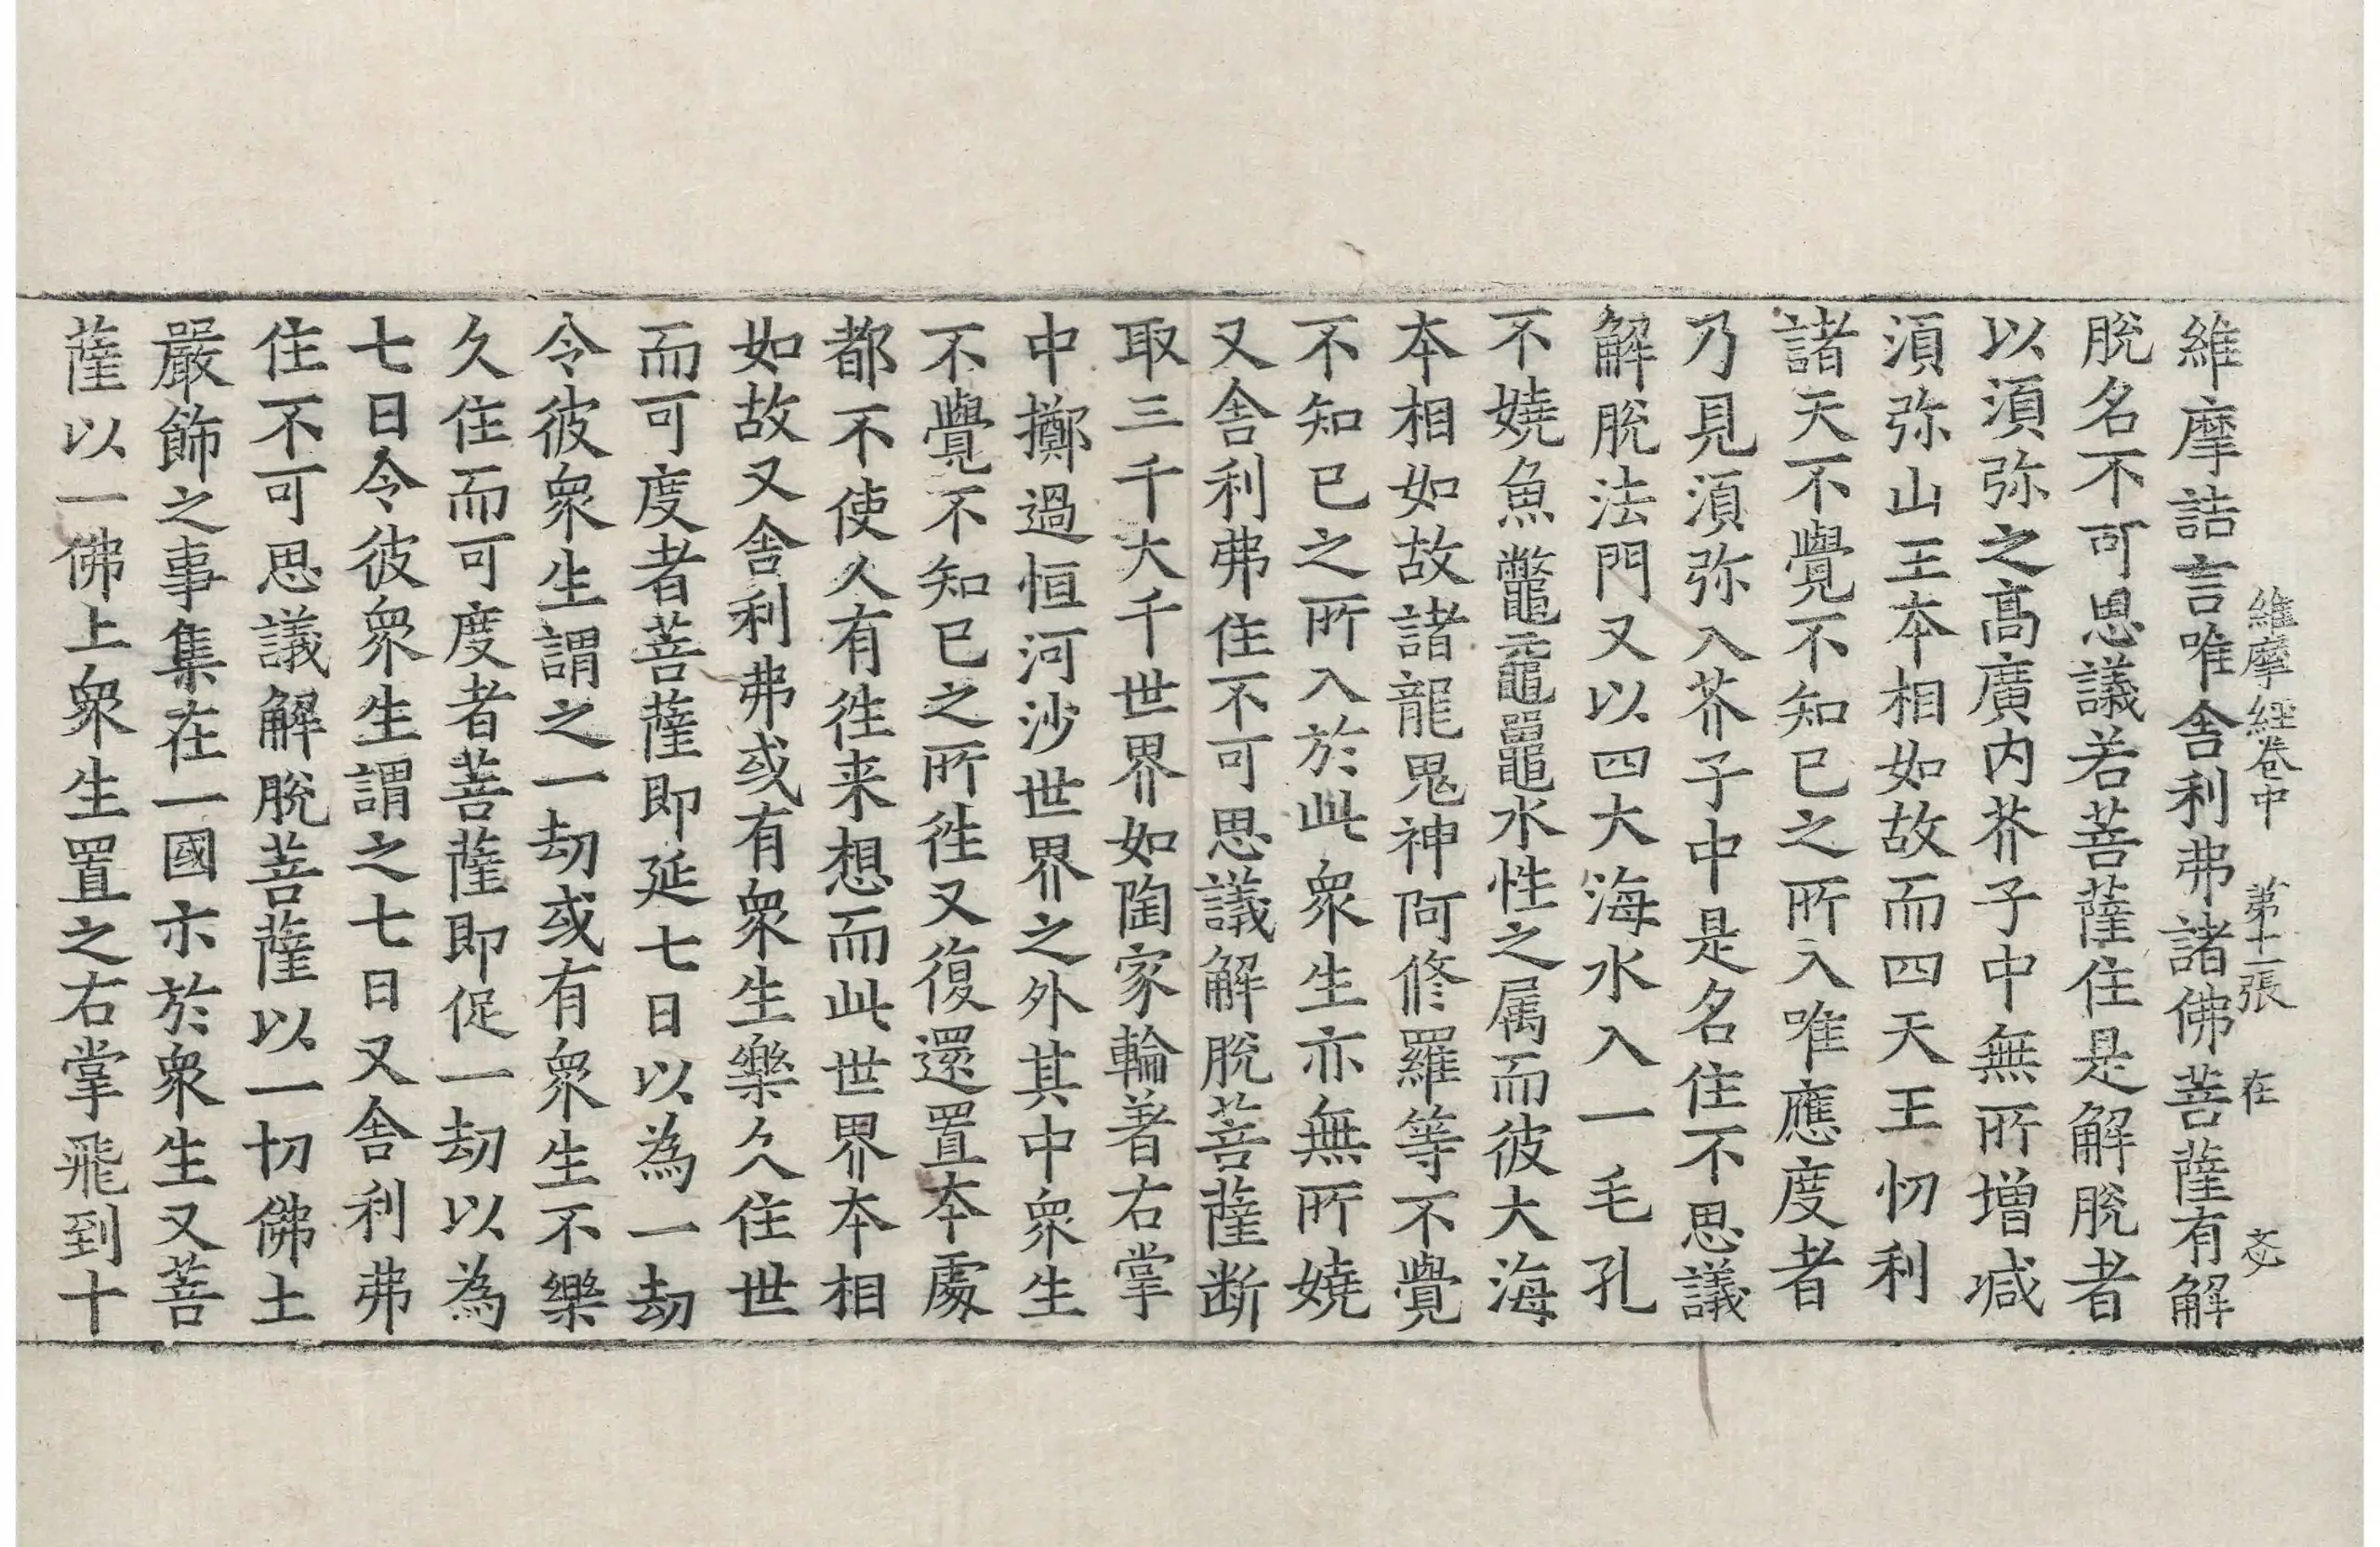 維摩經卷中 第十一張 在
維摩詰言唯舎利弗諸佛菩薩有解
脫名不可思議若菩薩住是解脫者
以湏弥之髙廣内芥子中無所増减
湏弥山王本相如故而四天王忉利
諸天不覺不知已之所入唯應度者
乃見湏弥入芥子中是名住不思議
解脫法門又以四大海水入一毛孔
不嬈魚鼈黿鼉水性之属而彼大海
本相如故諸龍鬼神阿修羅等不覺
不知已之所入於此衆生亦無所嬈
又舎利弗住不可思議解脫菩薩断
取三千大千世界如陶家輪著右掌
中擲過恒河沙世界之外其中衆生
不覺不知已之所徃又復還置本處
都不使人有徃来想而此世界本相
如故又舎利弗或有衆生樂久住世
而可度者菩薩即延七日以為一劫
令彼衆生謂之一劫或有衆生不樂
久住而可度者菩薩即促一劫以為
七日令彼衆生謂之七日又舎利弗
住不可思議解脫菩薩以一切佛土
嚴飾之事集在一國示於衆生又菩
薩以一佛土衆生置之右掌飛到十